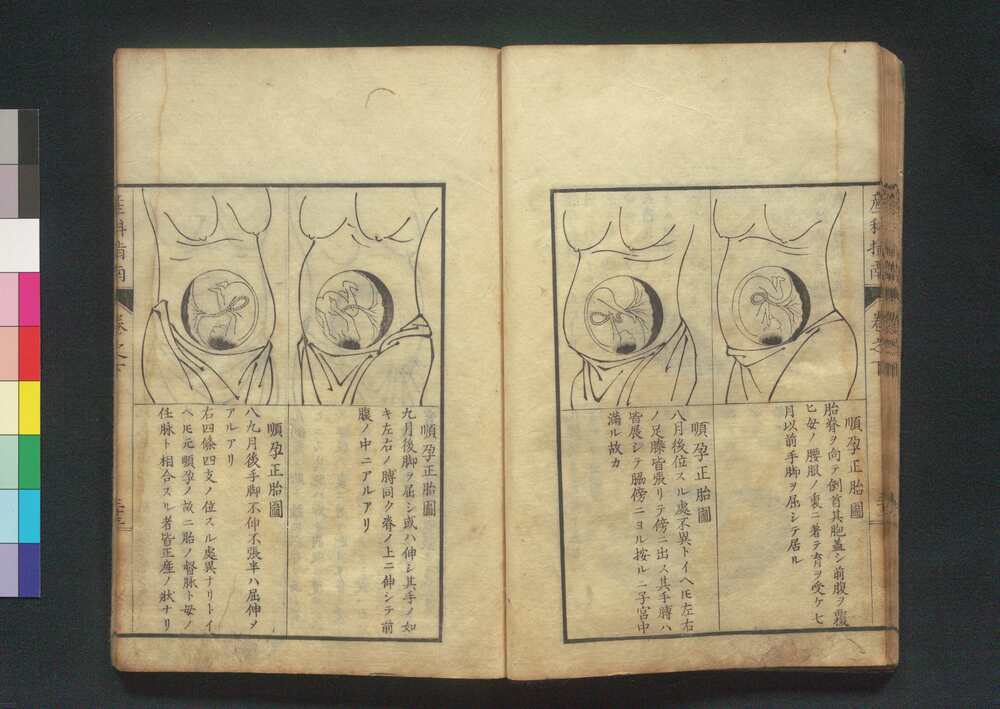 産科指南
卷之下
順孕正胎圖
胎脊ヲ向テ倒首其胞蓋シ前腹ヲ覆
ヒ母ノ腰眼ノ裏ニ著テ育ヲ受ケ七
月以前手脚ヲ屈シテ居ル
順孕正胎圖
八月後位スル處不異トイヘ𪜈左右
ノ足膝皆張リテ傍ニ出ス其手膊ハ
皆展シテ脇傍ニヨル按ルニ子宮中
滿ル故カ
順孕正胎圖
九月後脚ヲ屈シ或ハ伸シ其手ノ如
キ左右ノ膊同ク脊ノ上ニ伸シテ前
腹ノ中ニアルアリ
順孕正胎圖
八九月後手脚不伸不張半ハ屈伸ヲ
アルアリ
右四條四支ノ位スル處異ナリトイ
ヘ𪜈元順孕ノ故ニ胎ノ督脉ト母ノ
任脉ト相合スル者皆正産ノ狀ナリ
産科指南
卷之下